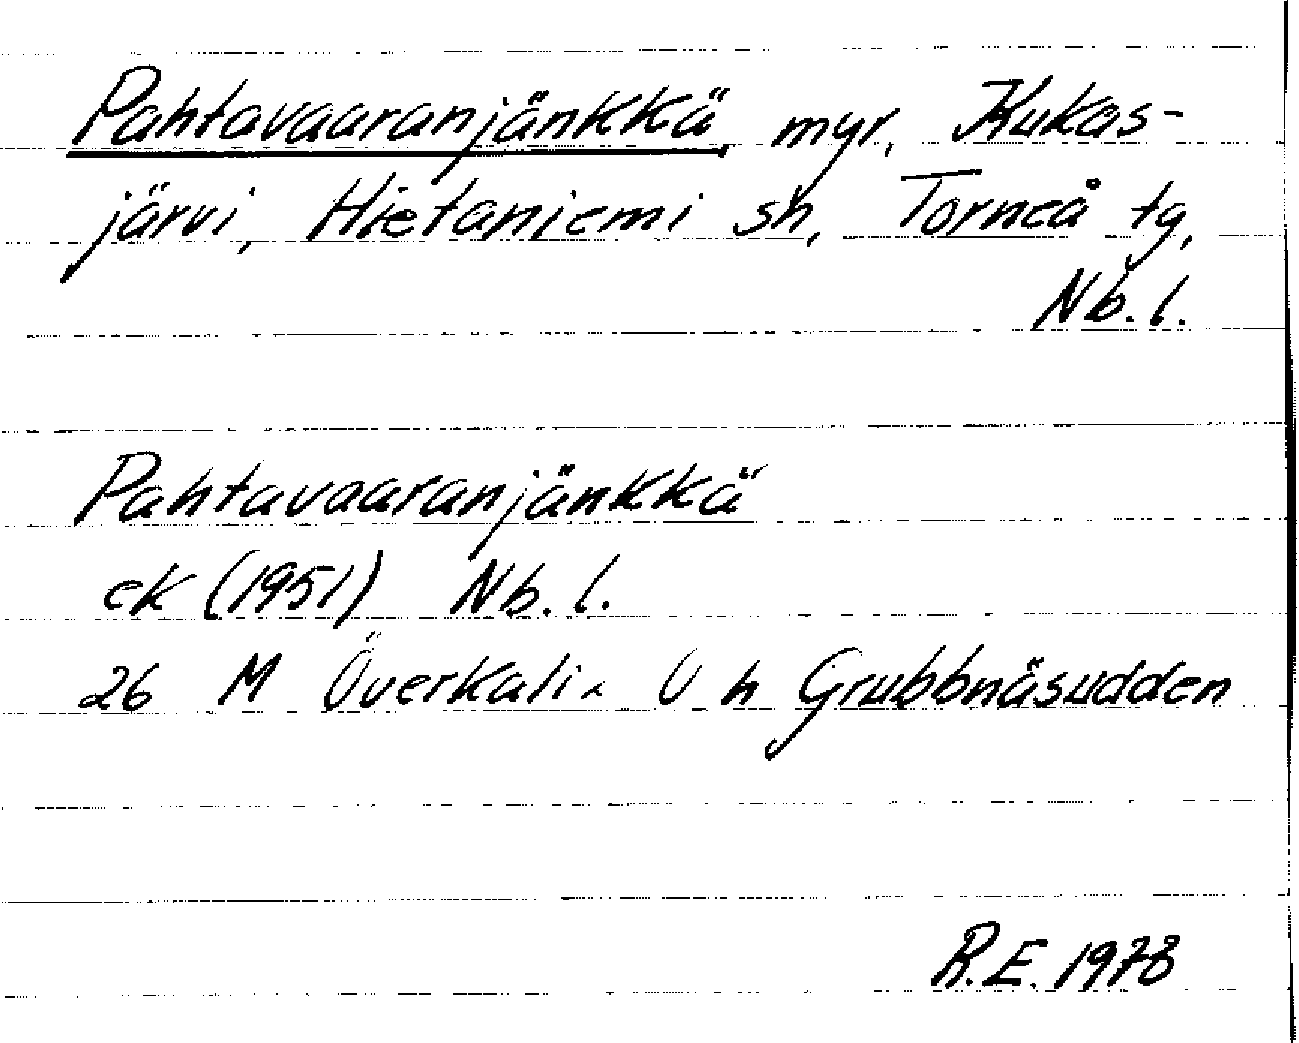 Pahtavaaranjänkkä, myr, Kukas-
järvi, Hietaniemi sn, Torneå tg,
Nb. l.
Pahtavaaranjänkkä
ek (1951) Nb. l.
26 M Överkalix Ö h Grubbnäsudden
R.E. 1978